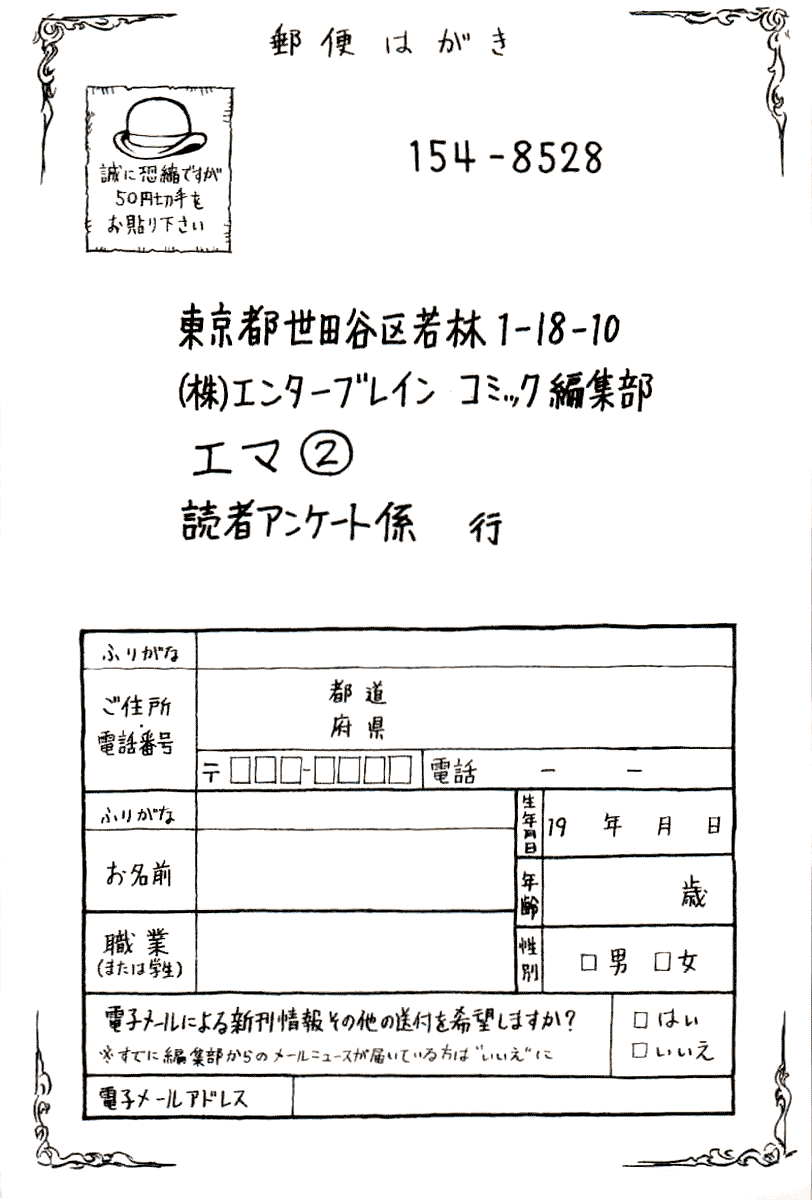 郵便はがき
誠に恐縮ですが
50円切手を
お貼り下さい
154-8528
東京都世田谷区若林1-18-10
(株)エンターブレイン コミック編集部
エマ②
読者アンケート係 行
ふりがな
ご住所
・
電話番号
都道
府県
〒□□□-□□□□
電話 - -
ふりがな
お名前
生年月日
19 年 月 日
年齢
歳
職業
(または学生)
性別
□男 □女
電子メールによる新刊情報その他の送付を希望しますか?
※すでに編集部からのメールニュースが届いている方は"いいえ"に
□はい
□いいえ
電子メールアドレス